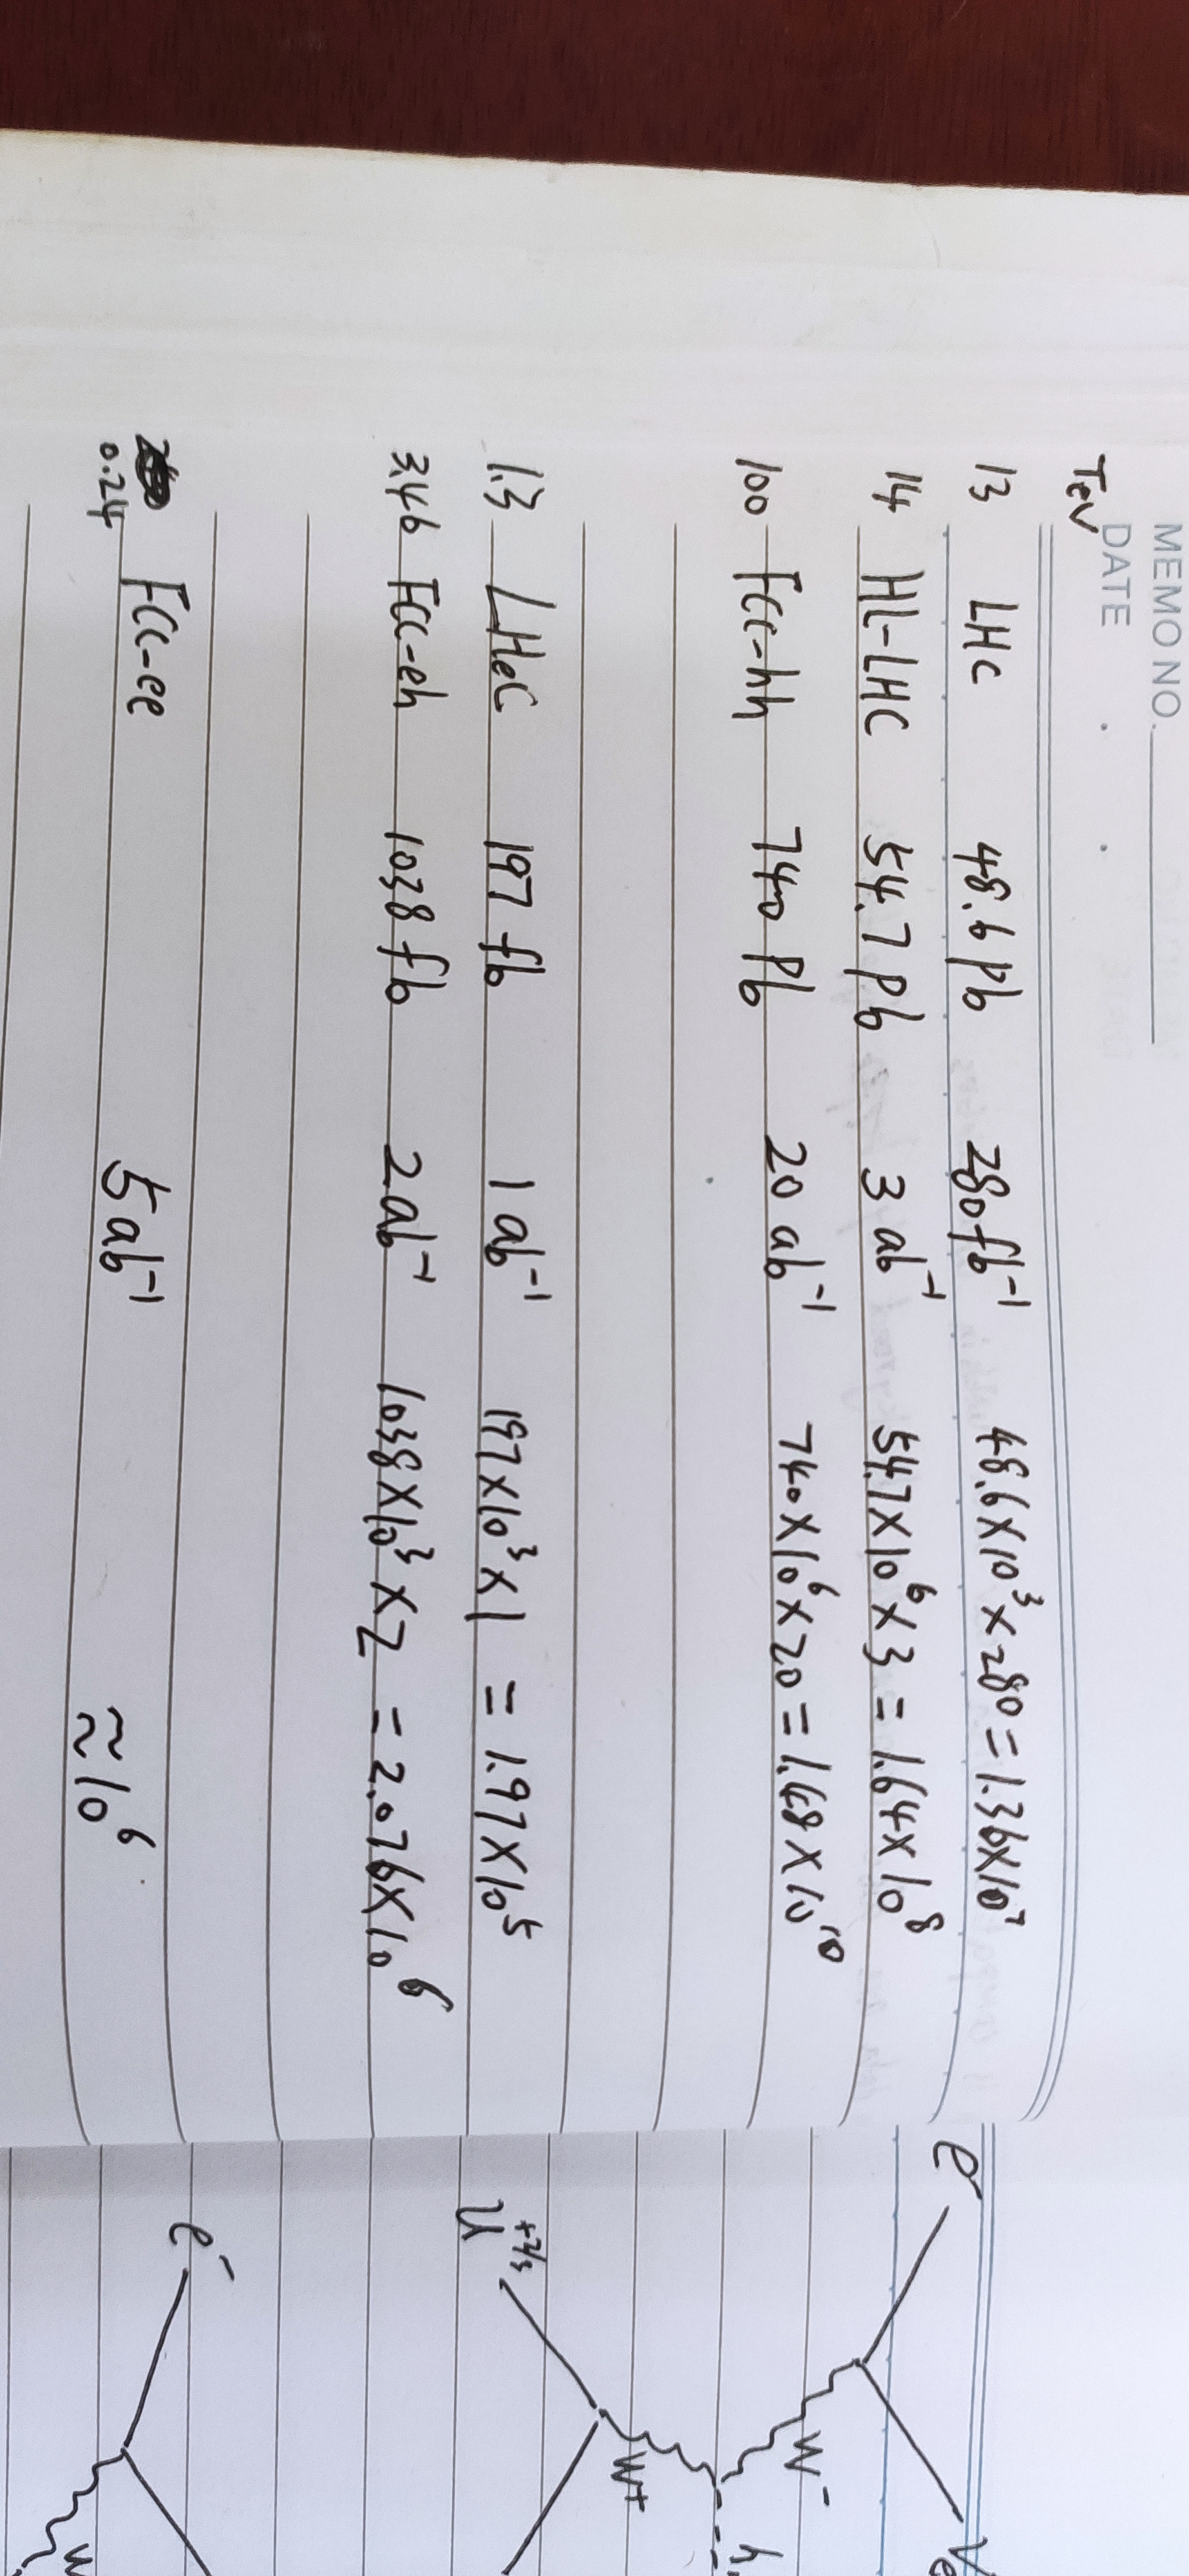 MEMO NO.
DATE . .
TeV
13 LHC 48.6 pb 280 fb⁻¹ 48.6×10³×280=1.36×10⁷
14 HL-LHC 54.7 pb 3 ab⁻¹ 54.7×10⁶×3=1.64×10⁸
100 FCC-hh 740 pb 20 ab⁻¹ 740×10⁶×20=1.48×10¹⁰
1.3 LHeC 197 fb 1 ab⁻¹ 197×10³×1 = 1.97×10⁵
3.46 FCC-eh 1038 fb 2 ab⁻¹ 1038×10³×2 = 2.076×10⁶
0.24 FCC-ee 5 ab⁻¹ ≈10⁶
e⁻
νe
W⁻
h
W⁺
u⁺²ᐟ³
e⁻
W